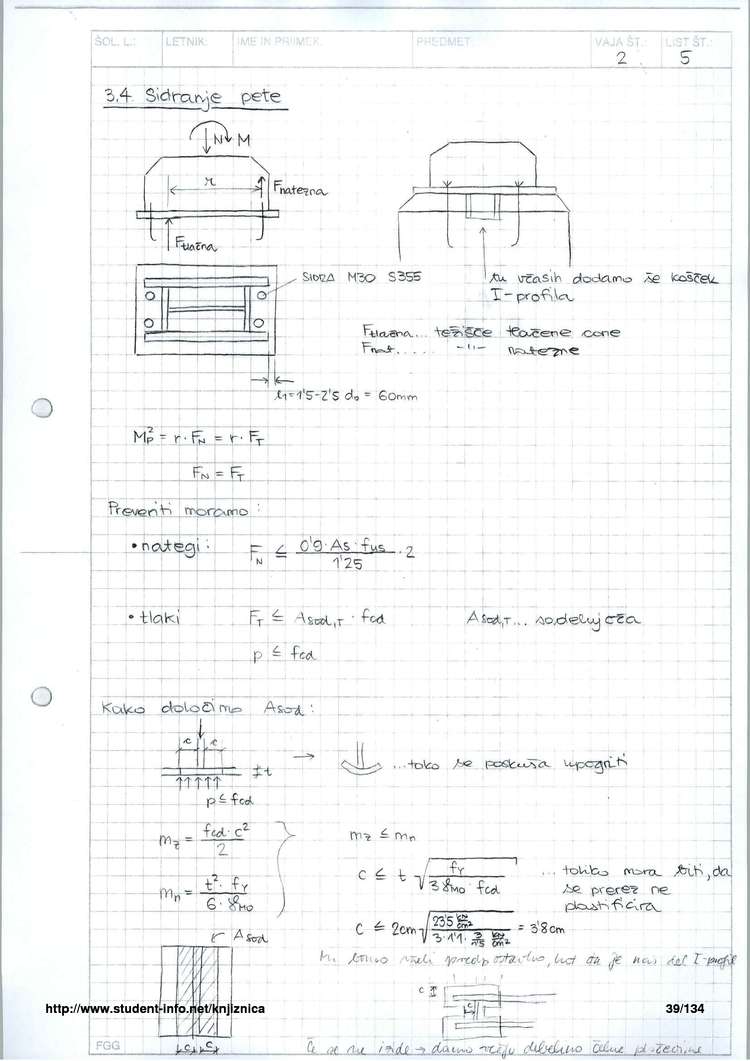 ŠOL. L.: LETNIK: IME IN PRIIMEK: PREDMET: VAJA ŠT.: LIST ŠT.:
2 5
3.4. Sidranje pete
N M
r
Fnatezna
Ftlačna
SIDRA M30 S355
tu včasih dodamo še košček
I-profila
Ftlačna... težišče tlačene cone
Fnat...... -"- natezne
l1=1'5-2'5 d0 = 60mm
Mp² = r·FN = r·FT
FN = FT
Preveriti moramo:
• nategi: FN ≤ 0'9·As·fus / 1'25 · 2
• tlaki FT ≤ Asod,T · fcd Asod,T... sodelujoča
p ≤ fcd
Kako določimo Asod:
c c
t ...tako se poskuša upogniti
p ≤ fcd
mz = fcd·c² / 2 mz ≤ mn
c ≤ t √(fy / 3 γM0 · fcd) ... toliko mora biti, da
mn = t²·fy / 6·γM0 se prerez ne
plastificira
c ≤ 2cm √(23'5 kN/cm² / 3·1'1· kN/cm²) = 3'8cm
Asod
c
c
c c
http://www.student-info.net/knjiznica 39/134
FGG Če se ne izide → damo večjo debelino čelne pločevine